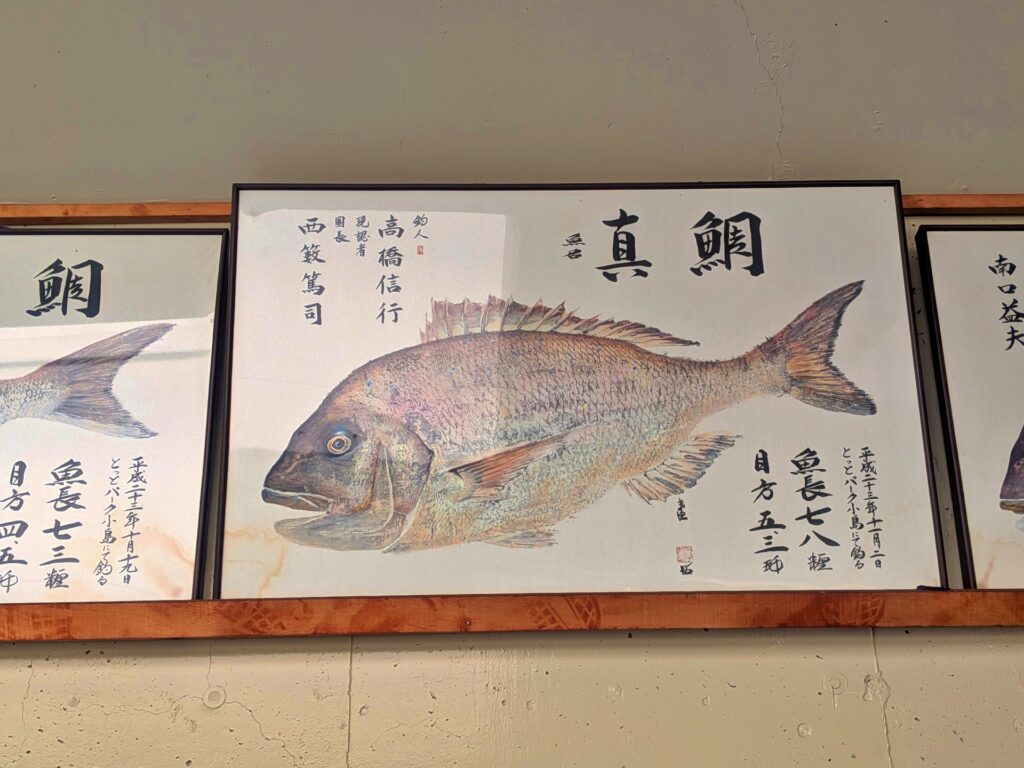 真鯛
魚名
釣人
高橋信行
現認者
園長
西籔篤司
平成二十三年十一月二日
とっとパーク小島にて釣る
魚長七八糎
目方五.三瓩
鯛
平成二十三年十月十九日
とっとパーク小島にて釣る
魚長七三糎
目方四.五瓩
南口益夫